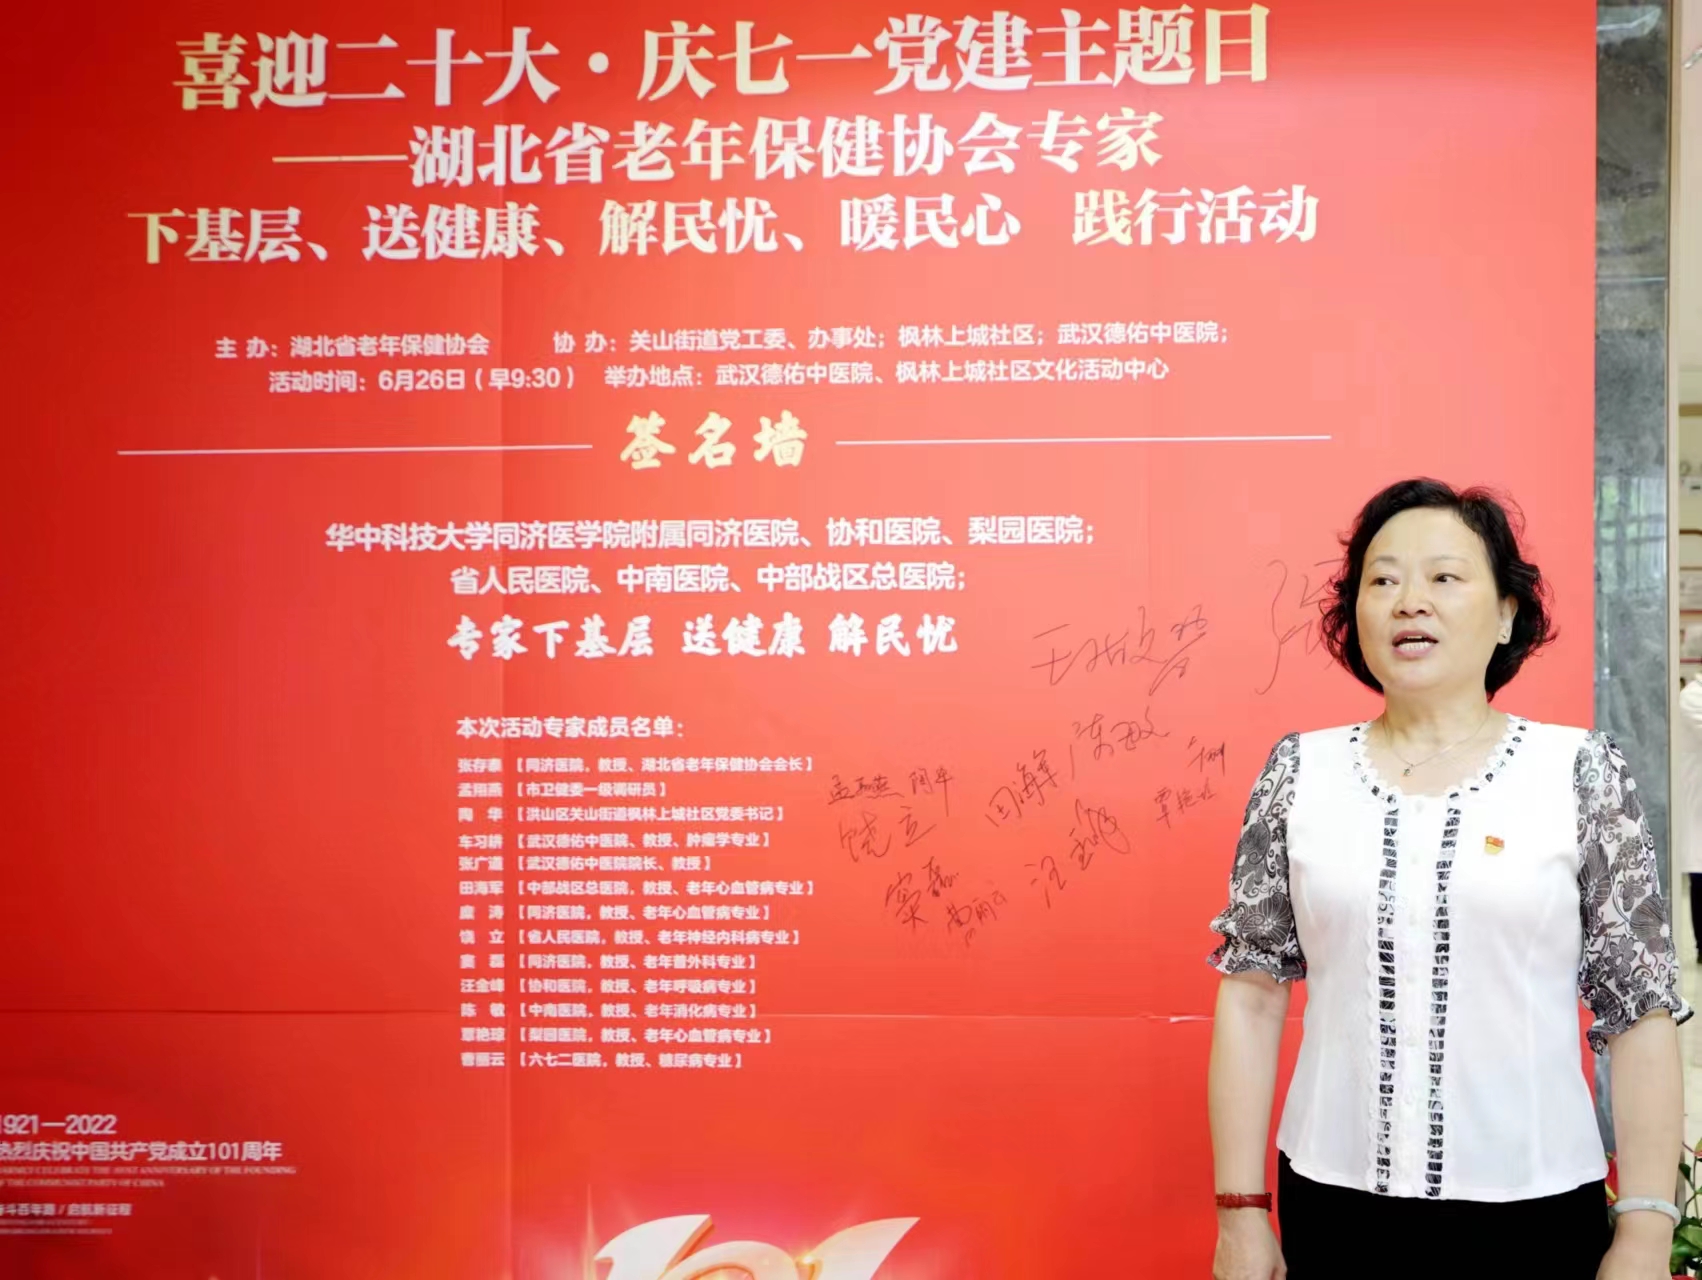 喜迎二十大·庆七一党建主题日
——湖北省老年保健协会专家
下基层、送健康、解民忧、暖民心 践行活动
主 办：湖北省老年保健协会 协 办：关山街道党工委、办事处；枫林上城社区；武汉德佑中医院；
活动时间：6月26日（早9:30） 举办地点：武汉德佑中医院、枫林上城社区文化活动中心
签名墙
华中科技大学同济医学院附属同济医院、协和医院、梨园医院；
省人民医院、中南医院、中部战区总医院；
专家下基层 送健康 解民忧
本次活动专家成员名单：
张存泰【同济医院，教授、湖北省老年保健协会会长】
孟翔燕【市卫健委一级调研员】
陶 华【洪山区关山街道枫林上城社区党委书记】
车习耕【武汉德佑中医院、教授、肿瘤学专业】
张广道【武汉德佑中医院院长、教授】
田海军【中部战区总医院，教授、老年心血管病专业】
庞 涛【同济医院，教授、老年心血管病专业】
饶 立【省人民医院，教授、老年神经内科病专业】
窦 磊【同济医院，教授、老年普外科专业】
汪金峰【协和医院，教授、老年呼吸病专业】
陈 敏【中南医院，教授、老年消化病专业】
覃艳琼【梨园医院，教授、老年心血管病专业】
曹丽云【六七二医院，教授、糖尿病专业】
陈敏
陶华
饶立
田海军
窦磊
曹丽云
1921—2022
热烈庆祝中国共产党成立101周年
WARMLY CELEBRATE THE 101ST ANNIVERSARY OF THE FOUNDING
OF THE COMMUNIST PARTY OF CHINA
奋斗百年路 / 启航新征程